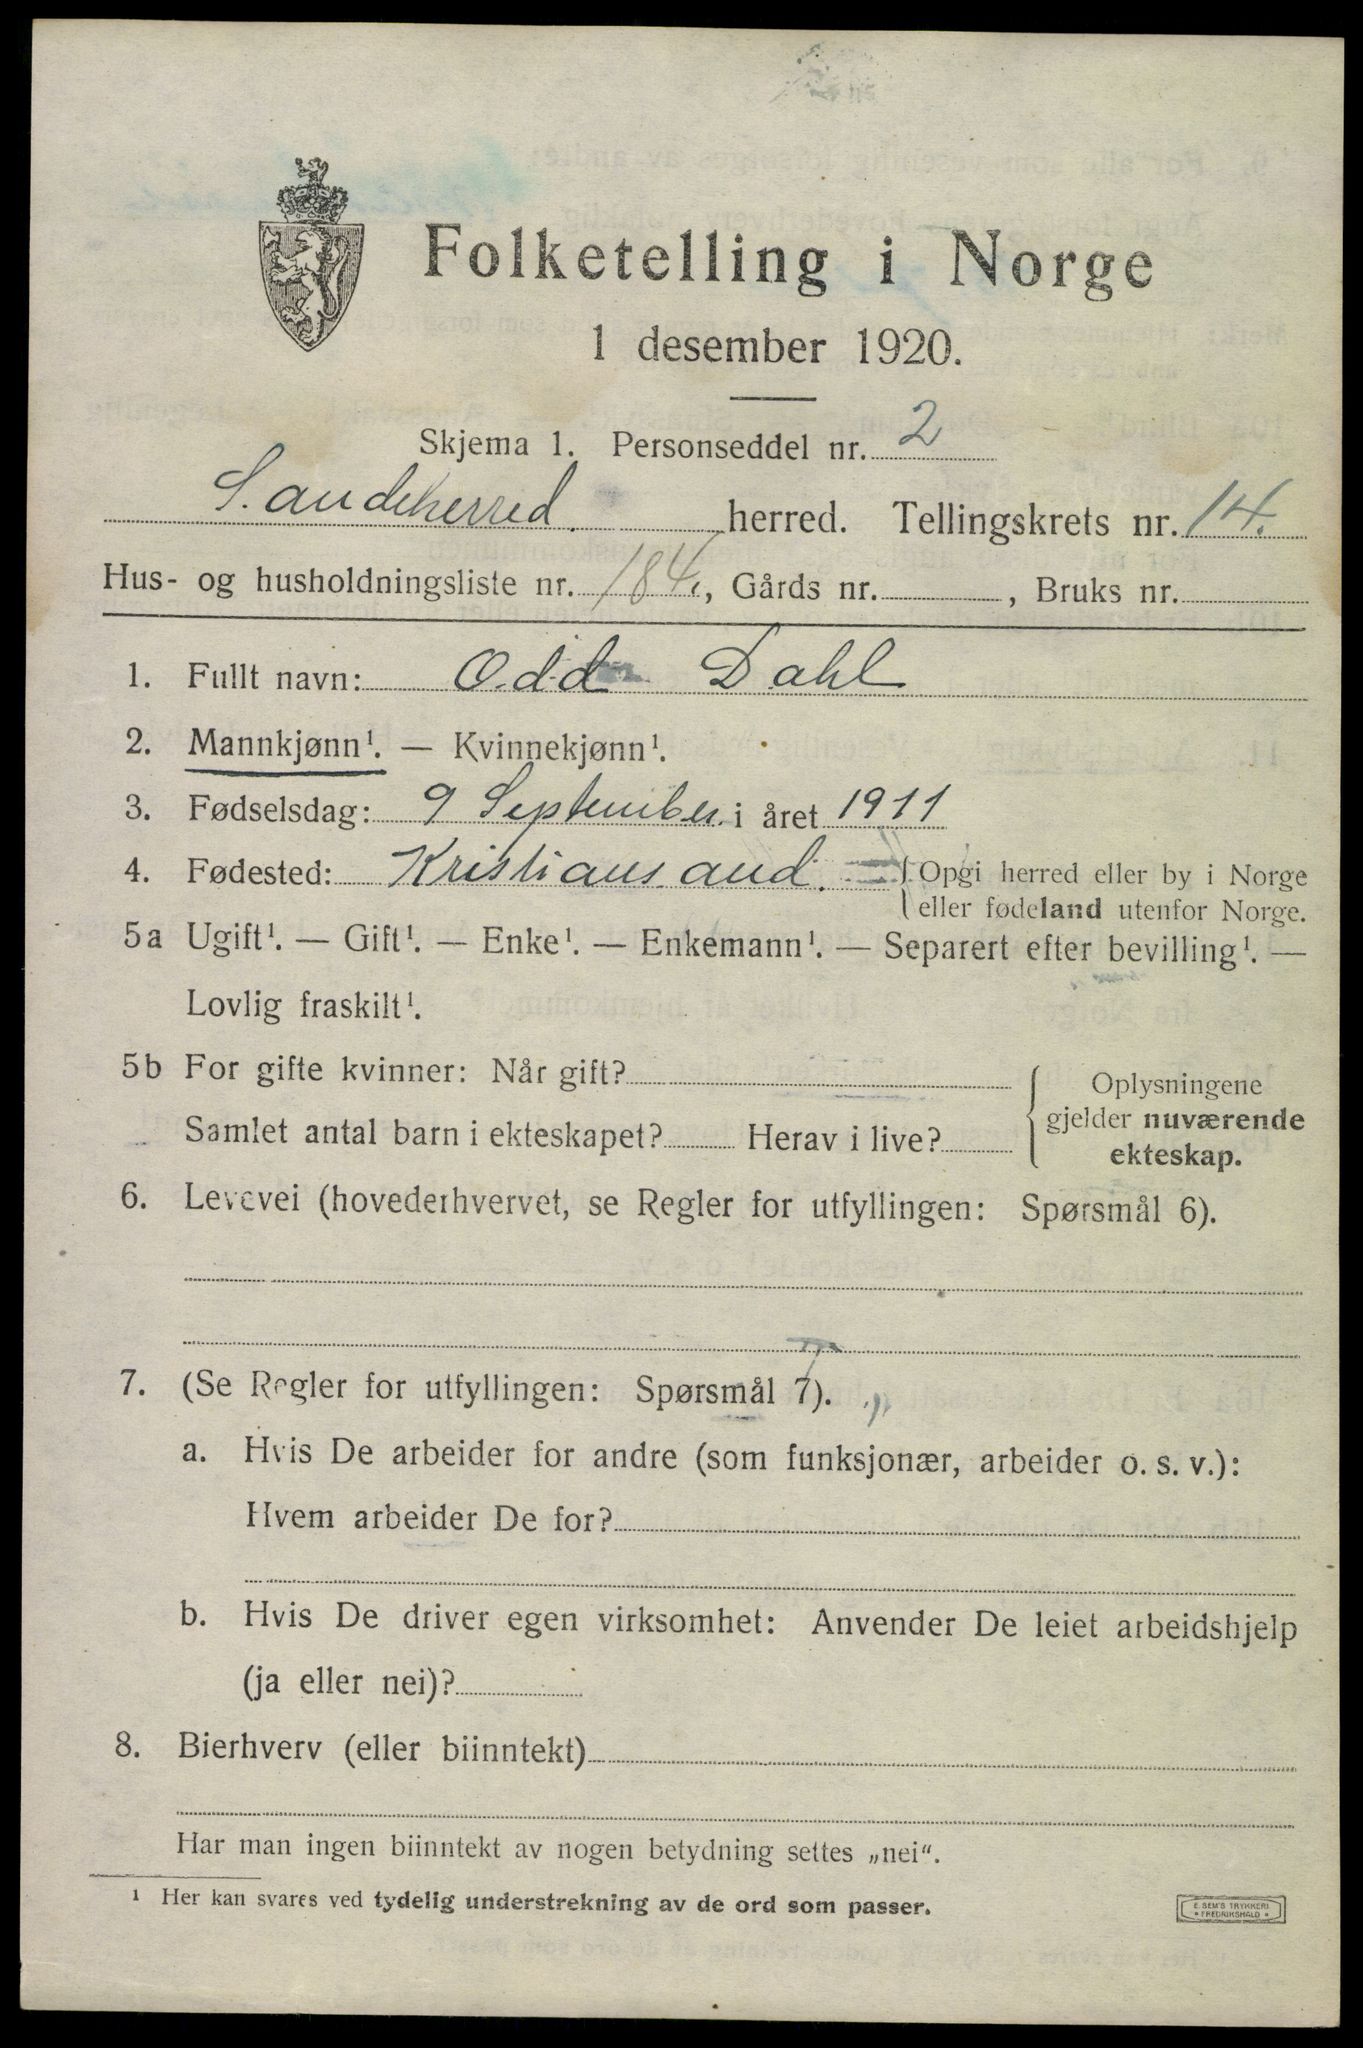 Folketelling i Norge
1 desember 1920.
Skjema 1. Personseddel nr. 2
Sandeherred herred. Tellingskrets nr. 14.
Hus- og husholdningsliste nr. 184., Gårds nr. , Bruks nr.
1. Fullt navn: Odd Dahl
2. Mannkjønn¹. — Kvinnekjønn¹.
3. Fødselsdag: 9 September i året 1911
4. Fødested: Kristiansand. Opgi herred eller by i Norge
eller fødeland utenfor Norge.
5a Ugift¹. — Gift¹. — Enke¹. — Enkemann¹. — Separert efter bevilling¹. —
Lovlig fraskilt¹.
5b For gifte kvinner: Når gift?
Samlet antal barn i ekteskapet? Herav i live?
Oplysningene
gjelder nuværende
ekteskap.
6. Levevei (hovederhvervet, se Regler for utfyllingen: Spørsmål 6).
7. (Se Regler for utfyllingen: Spørsmål 7).
a. Hvis De arbeider for andre (som funksjonær, arbeider o. s. v.):
Hvem arbeider De for?
b. Hvis De driver egen virksomhet: Anvender De leiet arbeidshjelp
(ja eller nei)?
8. Bierhverv (eller biinntekt)
Har man ingen biinntekt av nogen betydning settes „nei“.
¹ Her kan svares ved tydelig understrekning av de ord som passer.
E. SEM'S TRYKKERI
FREDRIKSHALD